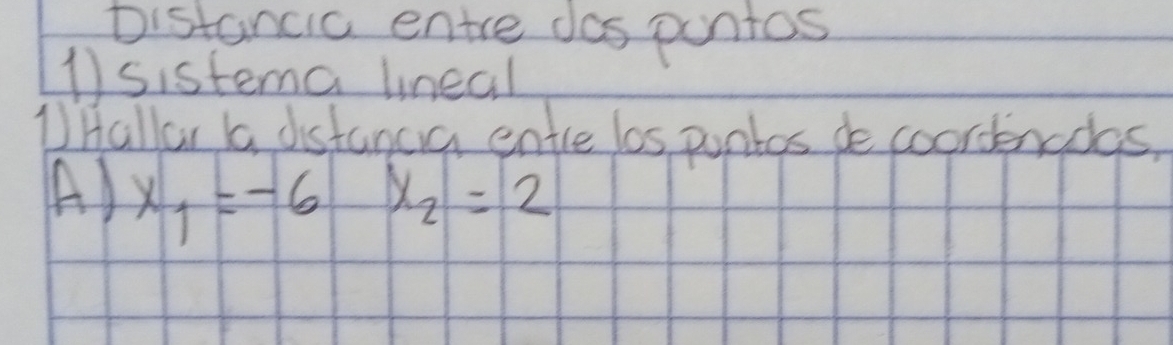 Distancia entre dos puntos
1) sistema lineal
1) Hallar la distancia entre los puntos de coordenadas.
A) x₁ = -6 x₂ = 2